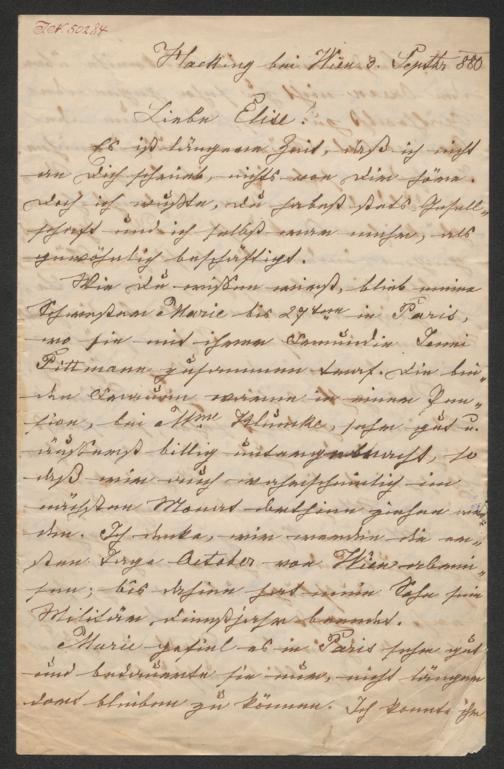 I.N. 50284
Hacking bei Wien 3. Septbr 880
Liebe Elise!
Es ist längere Zeit, daß ich nicht
an Dich schrieb, nichts von Dir höre.
Doch ich wußte, du habest stets Gesell-
schaft und ich selbst war mehr, als
gewöhnlich beschäftigt.
Wie Du wissen wirst, blieb meine
Schwester Marie bis 27ten in Paris,
wo sie mit ihrer Freundin Jenni
Pittmann zusammen traf. Die bei-
den Frauen waren in einer Pen-
sion, bei Mme Klumke, sehr gut u.
äusserst billig untergebracht, so
daß wir auch wahrscheinlich im
nächsten Monat dorthin ziehen wer-
den. Ich denke, wir werden die er-
sten Tage October von Wien abrei-
sen; bis dahin hat mein Sohn sein
Militär dienstjahr beendet.
Marie gefiel es in Paris sehr gut
und bedauerte sie nur, nicht länger
dort bleiben zu können. Ich konnte ihr